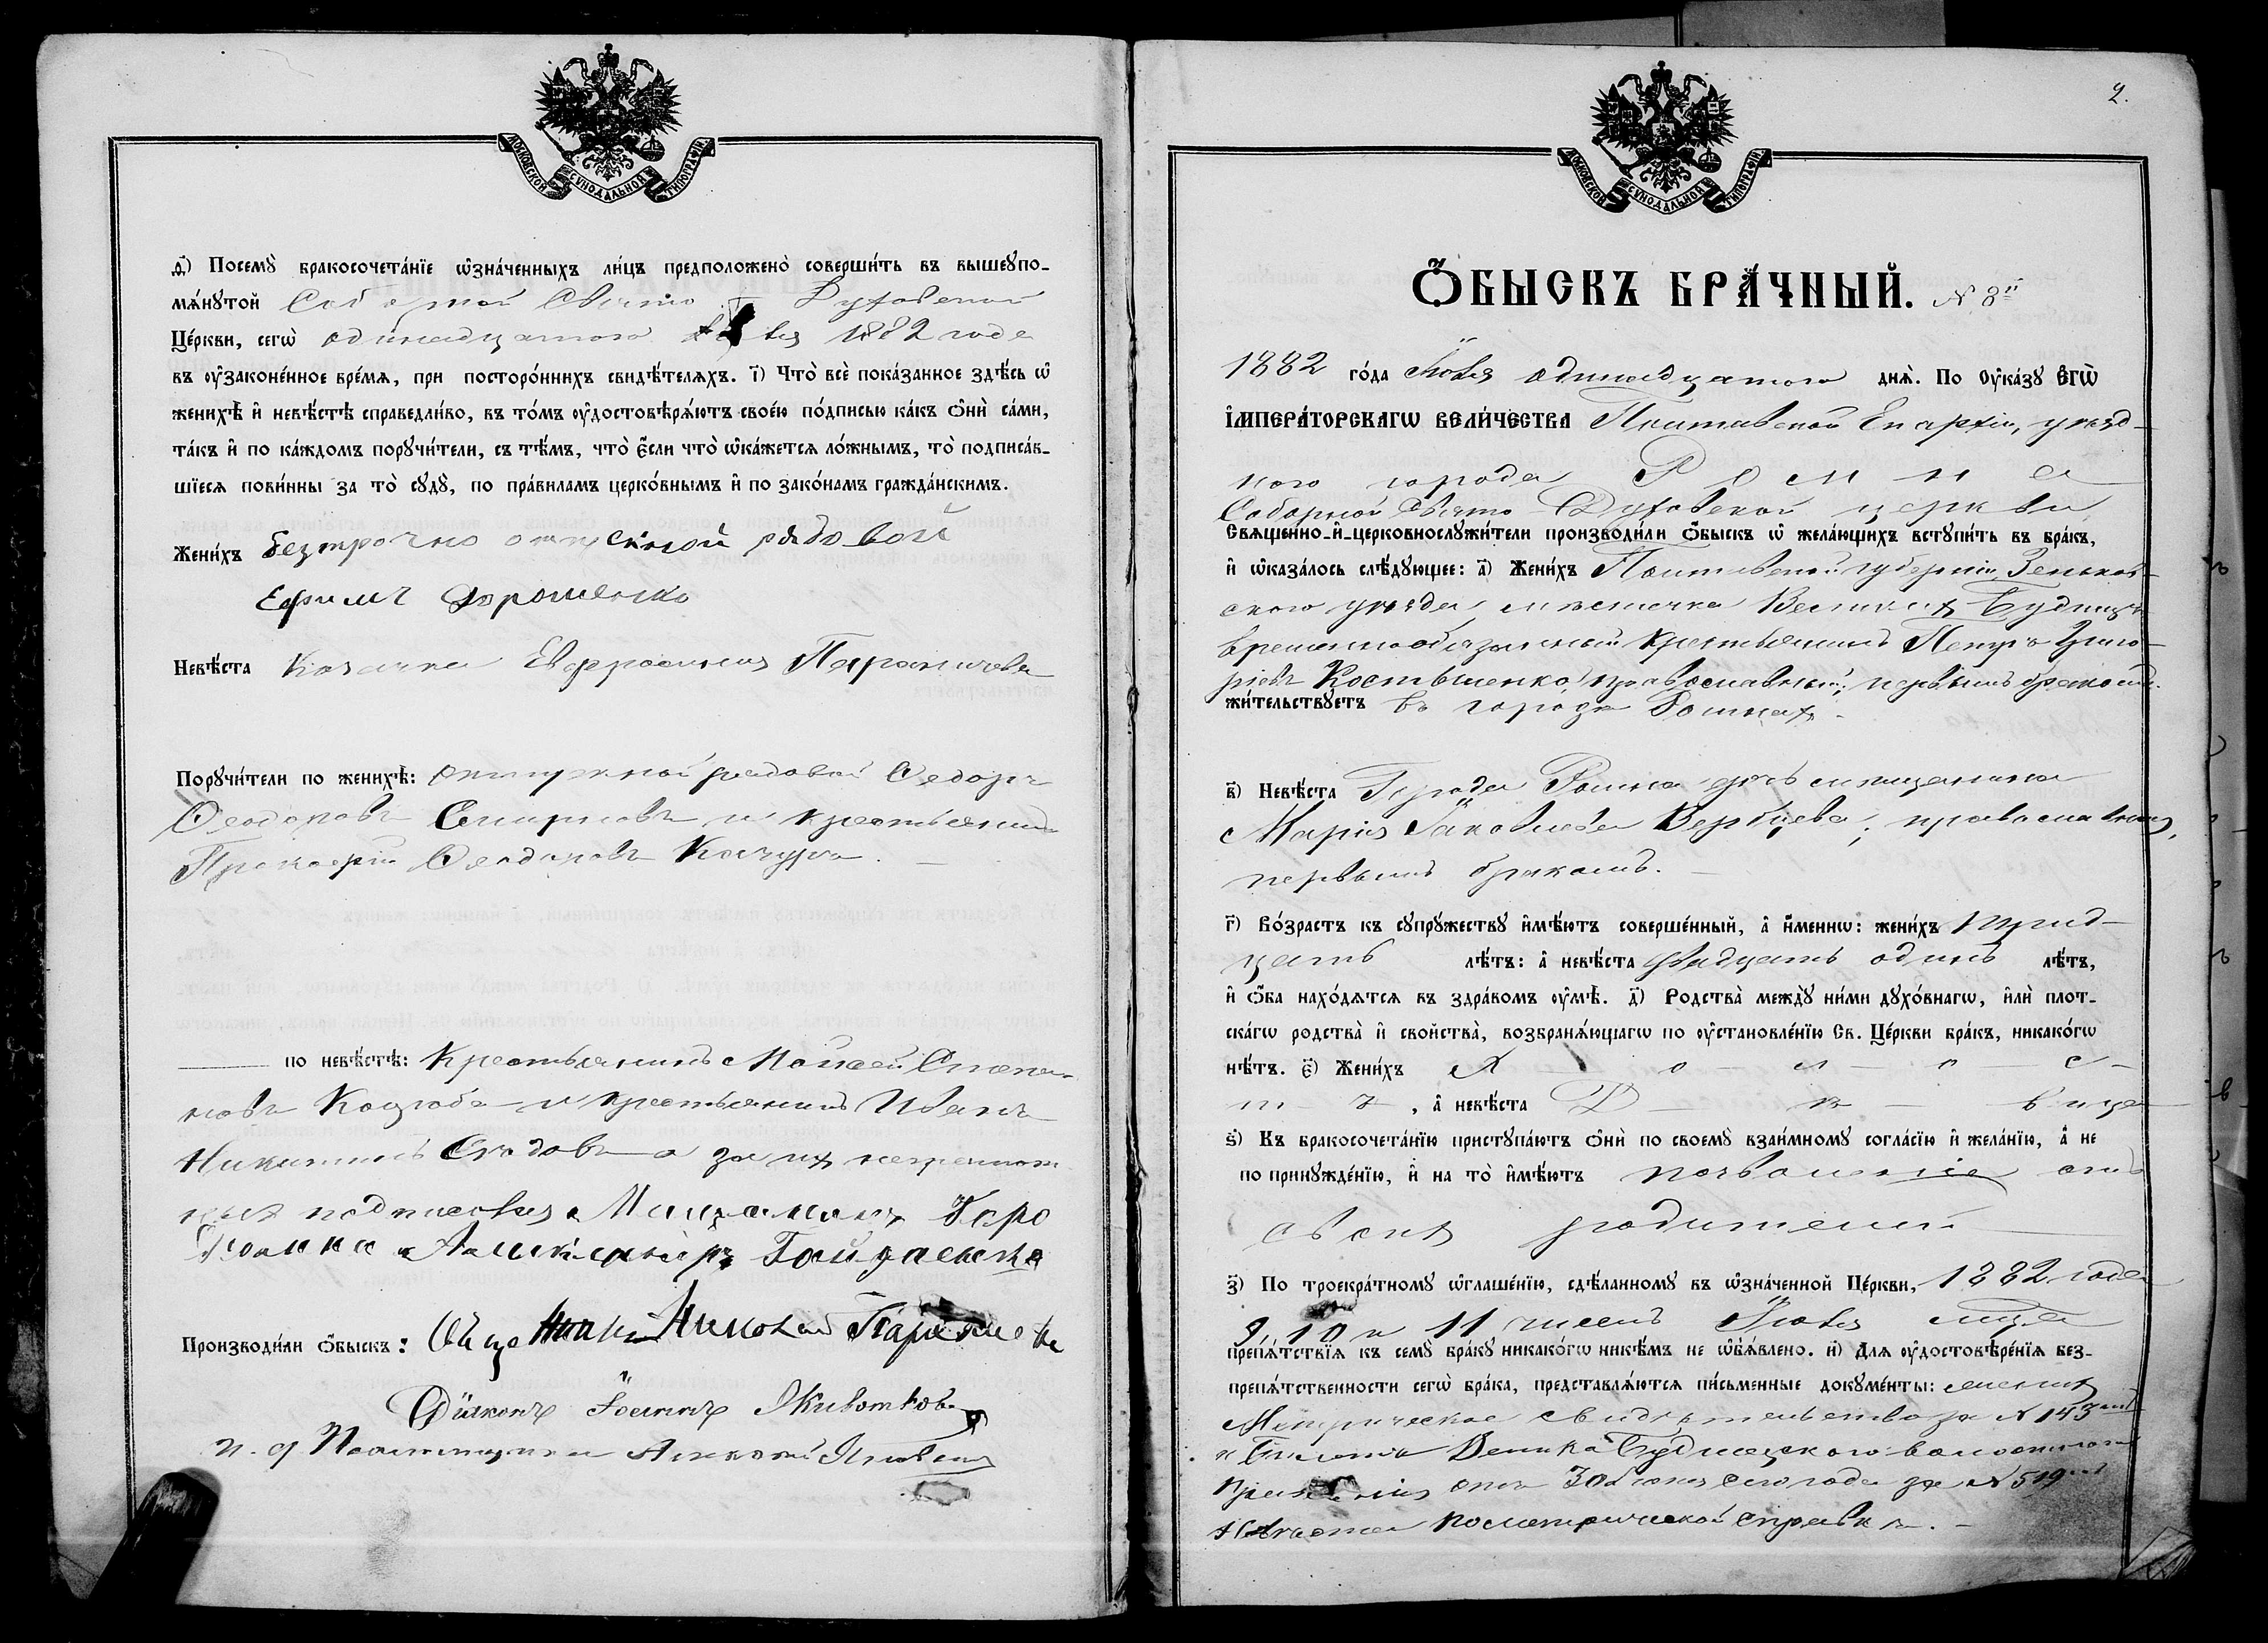 МОСКОВСКОЙ СѴНОДАЛЬНОЙ ТИПОГРАФІИ
д҃) Посемꙋ̀ бракосочета́нїе ѡ҆зна́ченныхъ ли́цъ предположено̀ соверши́ть въ вышеꙋпо-
мѧ́нꙋтой Соборной Свято Духовской
Це́ркви, сегѡ̀ одинадцатого 1882 года
въ ᲂу҆законе́нное вре́мѧ, при посторо́ннихъ свидѣ́телѧхъ. і҃) Что̀ всѐ пока́занное здѣ́сь ѡ҆
женихѣ̀ и҆ невѣ́стѣ справедли́во, въ то́мъ ᲂу҆достовѣрѧ́ютъ свое́ю по́дписью ка́къ ѻ҆нѝ са́ми,
та́къ и҆ по ка́ждомъ порꙋчи́тели, съ тѣ́мъ, что̀ є҆́сли что̀ ѡ҆ка́жетсѧ ло́жнымъ, то̀ подписа́в-
шїесѧ пови́нны за то̀ сꙋдꙋ̀, по пра́виламъ церко́внымъ и҆ по зако́намъ гражда́нскимъ.
Жени́хъ безсрочно отпускной рядовой
Ефимъ Дорошенко
Невѣ́ста Козачка Евфросинія
Порꙋчи́тели по женихѣ̀: отпускной рядовой Ѳедоръ
Ѳеодоровъ Смирновъ и крестьянинъ
Прокофій Ѳеодоровъ Качура.
по невѣ́стѣ: Крестьянинъ Моисей Степа-
новъ Коцюба и крестьянинъ Иванъ
Никитинъ а за ихъ неграмот-
ныхъ подписался Мищанинъ Горо
да Ромна Александръ Гайдаенко
Производи́ли ѻ҆́быскъ: Священникъ Николай
Діаконъ Іоаннъ Животковъ
и. д. Псаломщика Алексей
2.
МОСКОВСКОЙ СѴНОДАЛЬНОЙ ТИПОГРАФІИ
Ѻ҆́БЫСКЪ БРА́ЧНЫЙ. № 8й
1882 го́да Іюля одинадцатого днѧ̀. По ᲂу҆ка́зꙋ Є҆гѡ̀
І҆мпера́торскагѡ вели́чества Полтавской Епархіи, уезд-
ного города Ромна
Соборной Свято Духовской церкви
Свѧщенно-и҆-церковнослꙋжи́тели производи́ли ѻ҆́быскъ ѡ҆ жела́ющихъ встꙋпи́ть въ бра́къ,
и҆ ѡ҆каза́лось слѣ́дꙋющее: а҃) Жени́хъ Полтавской губерніи, Зеньков-
ского уезда, местечка Великихъ Будищъ
временнообязанный крестьянинъ Петръ Григо-
ріевъ Костышенко, православный, первымъ бракомъ.
жи́тельствꙋетъ въ городе Ромнахъ.
в҃) Невѣ́ста Города Ромна дочь мещанина
Марія Іаковлева Вербцева, православная,
первымъ бракомъ.
г҃) Во́зрастъ къ сꙋпрꙋжествꙋ и҆мѣ́ютъ соверше́нный, а҆ и҆́меннѡ: жени́хъ трид-
цать лѣ́тъ: а҆ невѣ́ста двадцать одинъ лѣ́тъ,
и҆ ѻ҆́ба нахо́дѧтсѧ въ здра́вомъ ᲂу҆мѣ̀. д҃) Родства̀ междꙋ̀ ни́ми дꙋхо́внагѡ, и҆лѝ плот-
ска́гѡ родства̀ и҆ сво́йства, возбранѧ́ющагѡ по ᲂу҆становле́нїю Св. Це́ркви бра́къ, никако́гѡ
нѣ́тъ. є҃) Жени́хъ Холос-
тъ, а҆ невѣ́ста Девица
ѕ҃) Къ бракосочета́нїю пристꙋпа́ютъ ѻ҆нѝ по своемꙋ̀ взаи́мномꙋ согла́сїю и҆ жела́нїю, а҆ не
по принꙋжде́нїю, и҆ на то̀ и҆мѣ́ютъ позволеніе отъ
своихъ родителей
з҃) По троекра́тномꙋ ѡ҆глаше́нїю, сдѣ́ланномꙋ въ ѡ҆зна́ченной Це́ркви, 1882 года
9, 10 и 11 чиселъ Іюля мца
препѧ́тствїѧ къ семꙋ̀ бра́кꙋ никако́гѡ никѣ́мъ не ѡ҆б̾ѧ́влено. и҃) Длѧ ᲂу҆достовѣре́нїѧ без-
препѧ́тственности сегѡ̀ бра́ка, представлѧ́ютсѧ пи́сьменные докꙋме́нты: жениха
Метрическое свидетельство за № 143
и Билетъ Велико Будищского волостного
Правленія отъ 30 Іюня сего года за № 519
Невеста по метрической справке.